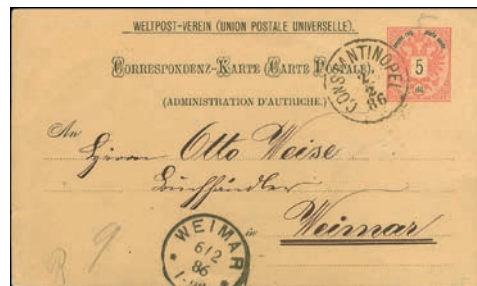 WELTPOST-VEREIN (UNION POSTALE UNIVERSELLE).
CORRESPONDENZ-KARTE (CARTE POSTALE).
(ADMINISTRATION D'AUTRICHE.)
CONSTANTINOPEL
86
5
An
Herrn Otto Weise
Buchhändler
in
Weimar
WEIMAR
6/2
86
9